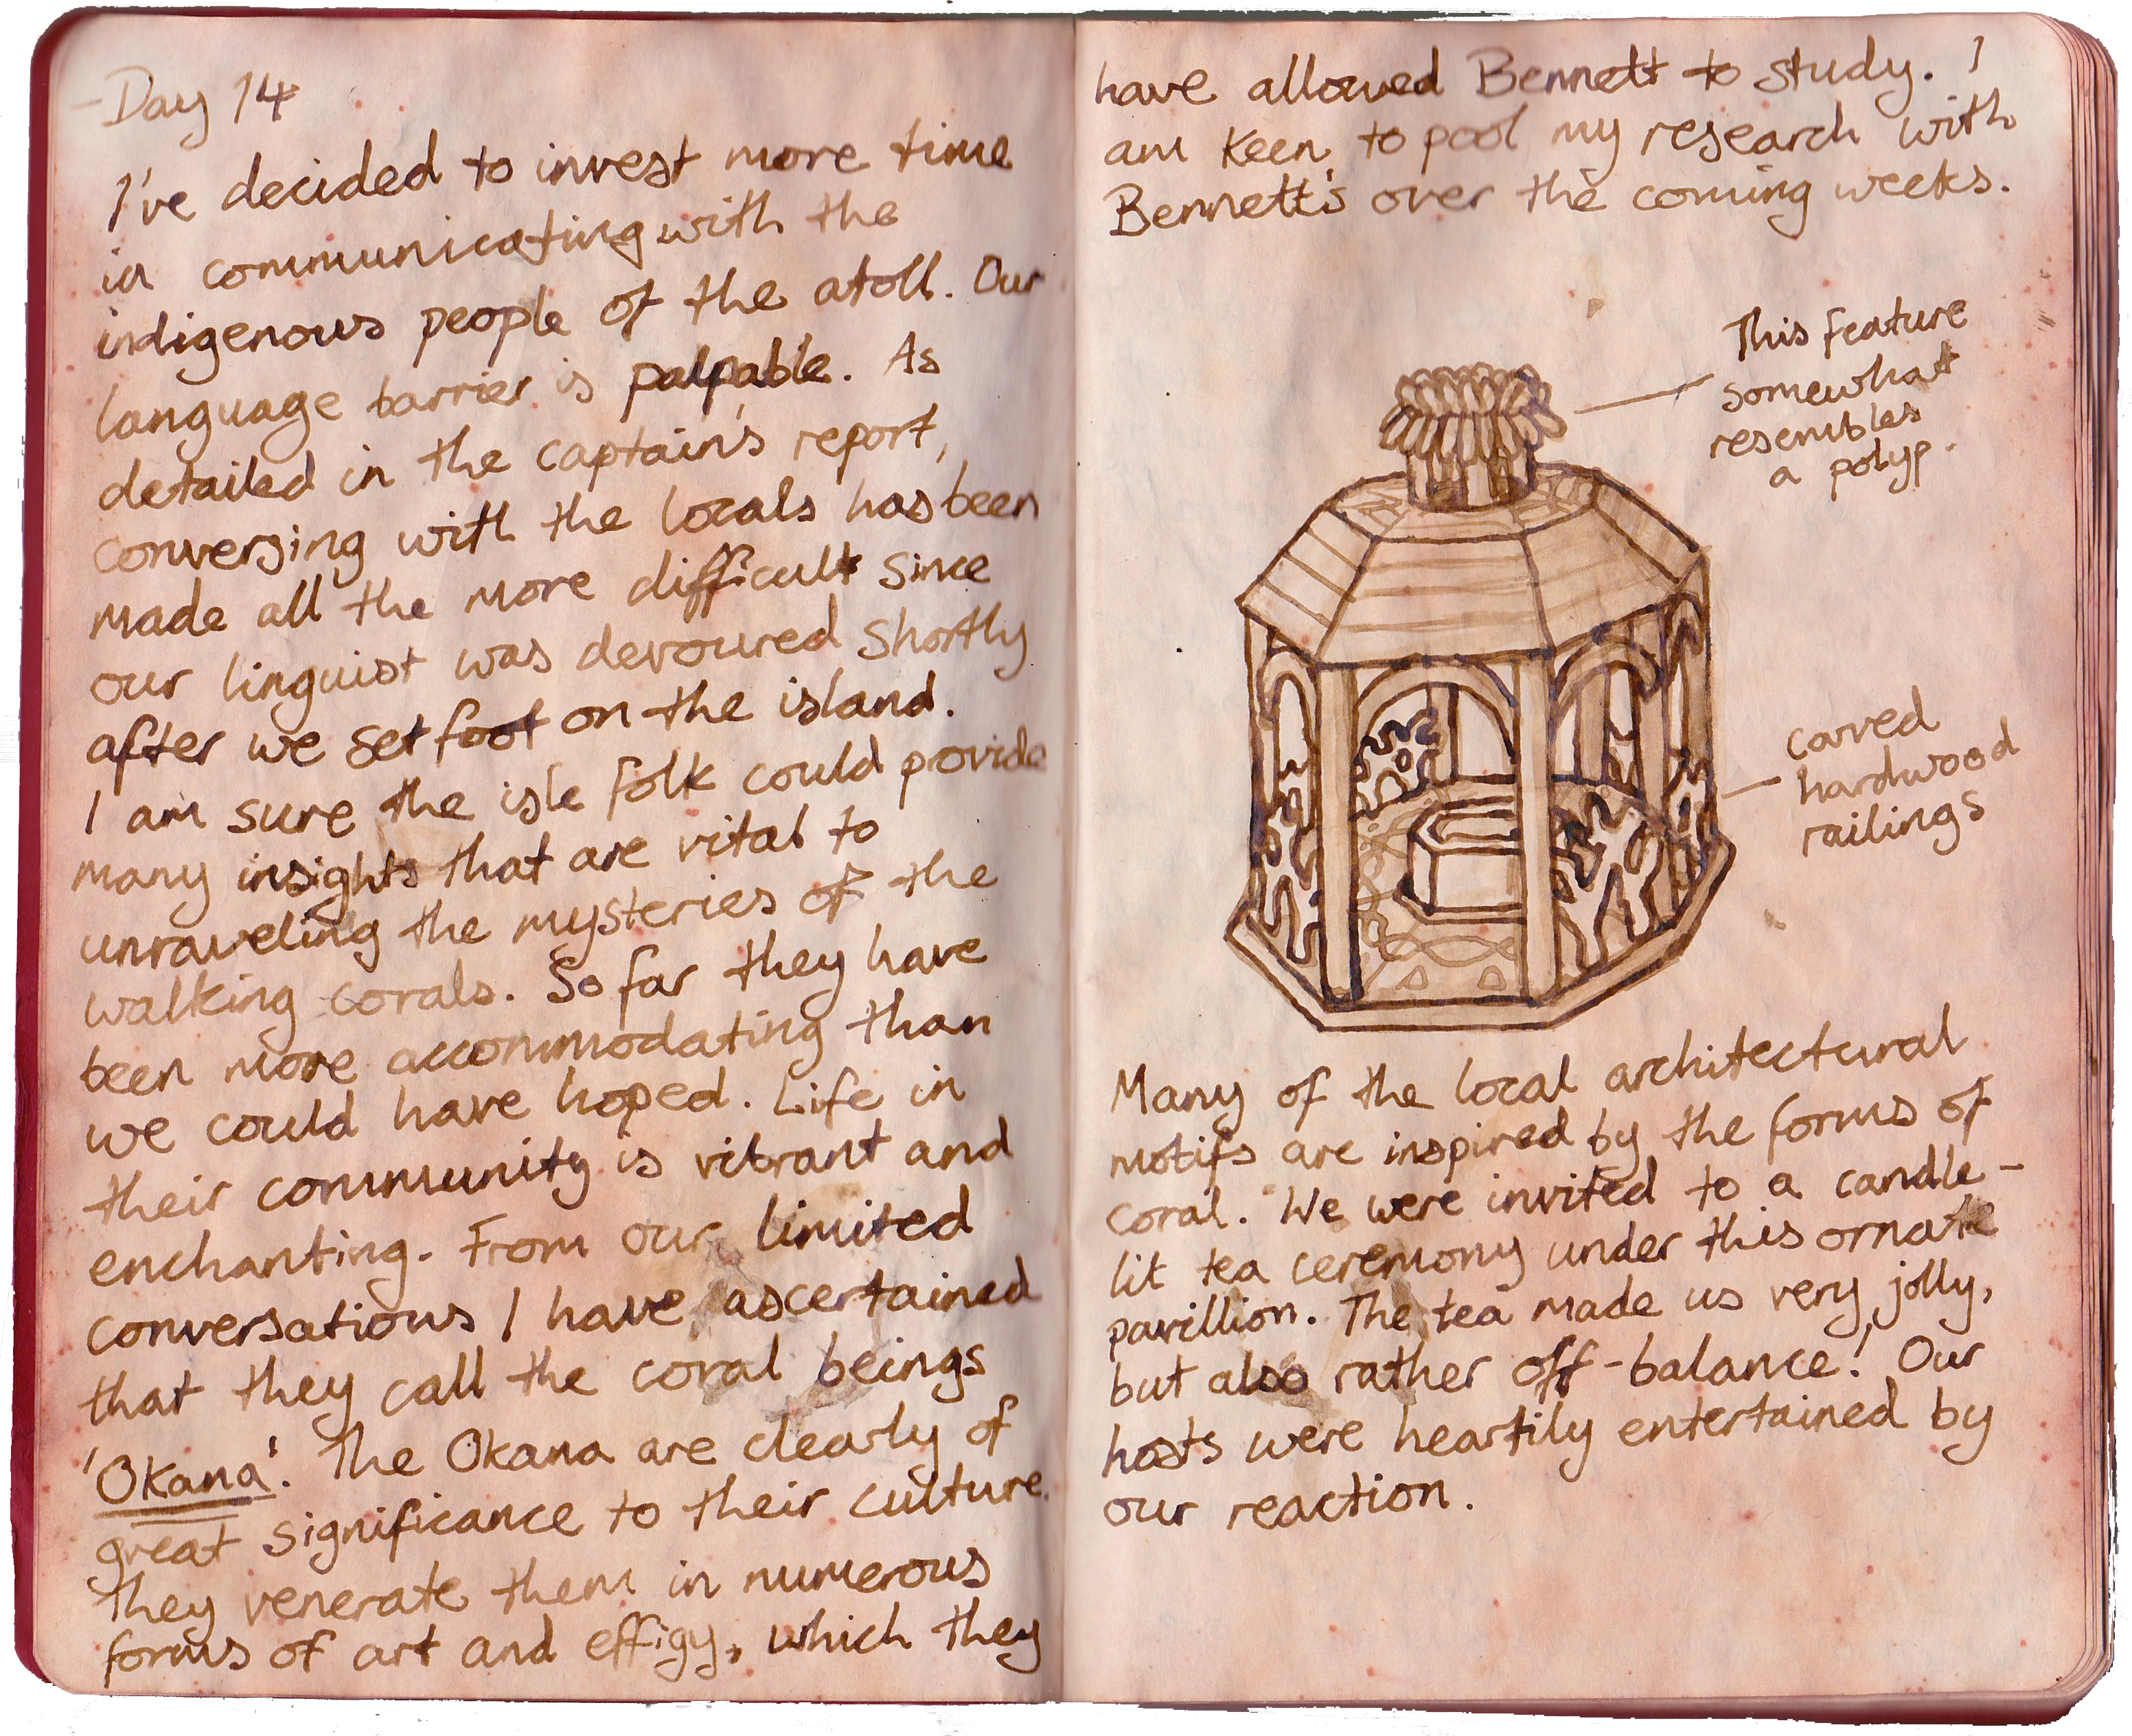 -Day 14
I've decided to invest more time
in communicating with the
indigenous people of the atoll. Our
language barrier is palpable. As
detailed in the captain's report,
conversing with the locals has been
made all the more difficult since
our linguist was devoured shortly
after we set foot on the island.
I am sure the isle folk could provide
many insights that are vital to
unraveling the mysteries of the
walking corals. So far they have
been more accommodating than
we could have hoped. Life in
their community is vibrant and
enchanting. From our limited
conversations I have ascertained
that they call the coral beings
'Okana'. The Okana are clearly of
great significance to their culture.
They venerate them in numerous
forms of art and effigy, which they
have allowed Bennett to study. I
am keen to pool my research with
Bennett's over the coming weeks.
This feature
somewhat
resembles
a polyp.
carved
hardwood
railings
Many of the local architectural
motifs are inspired by the forms of
coral. We were invited to a candle-
lit tea ceremony under this ornate
pavillion. The tea made us very jolly,
but also rather off-balance! Our
hosts were heartily entertained by
our reaction.